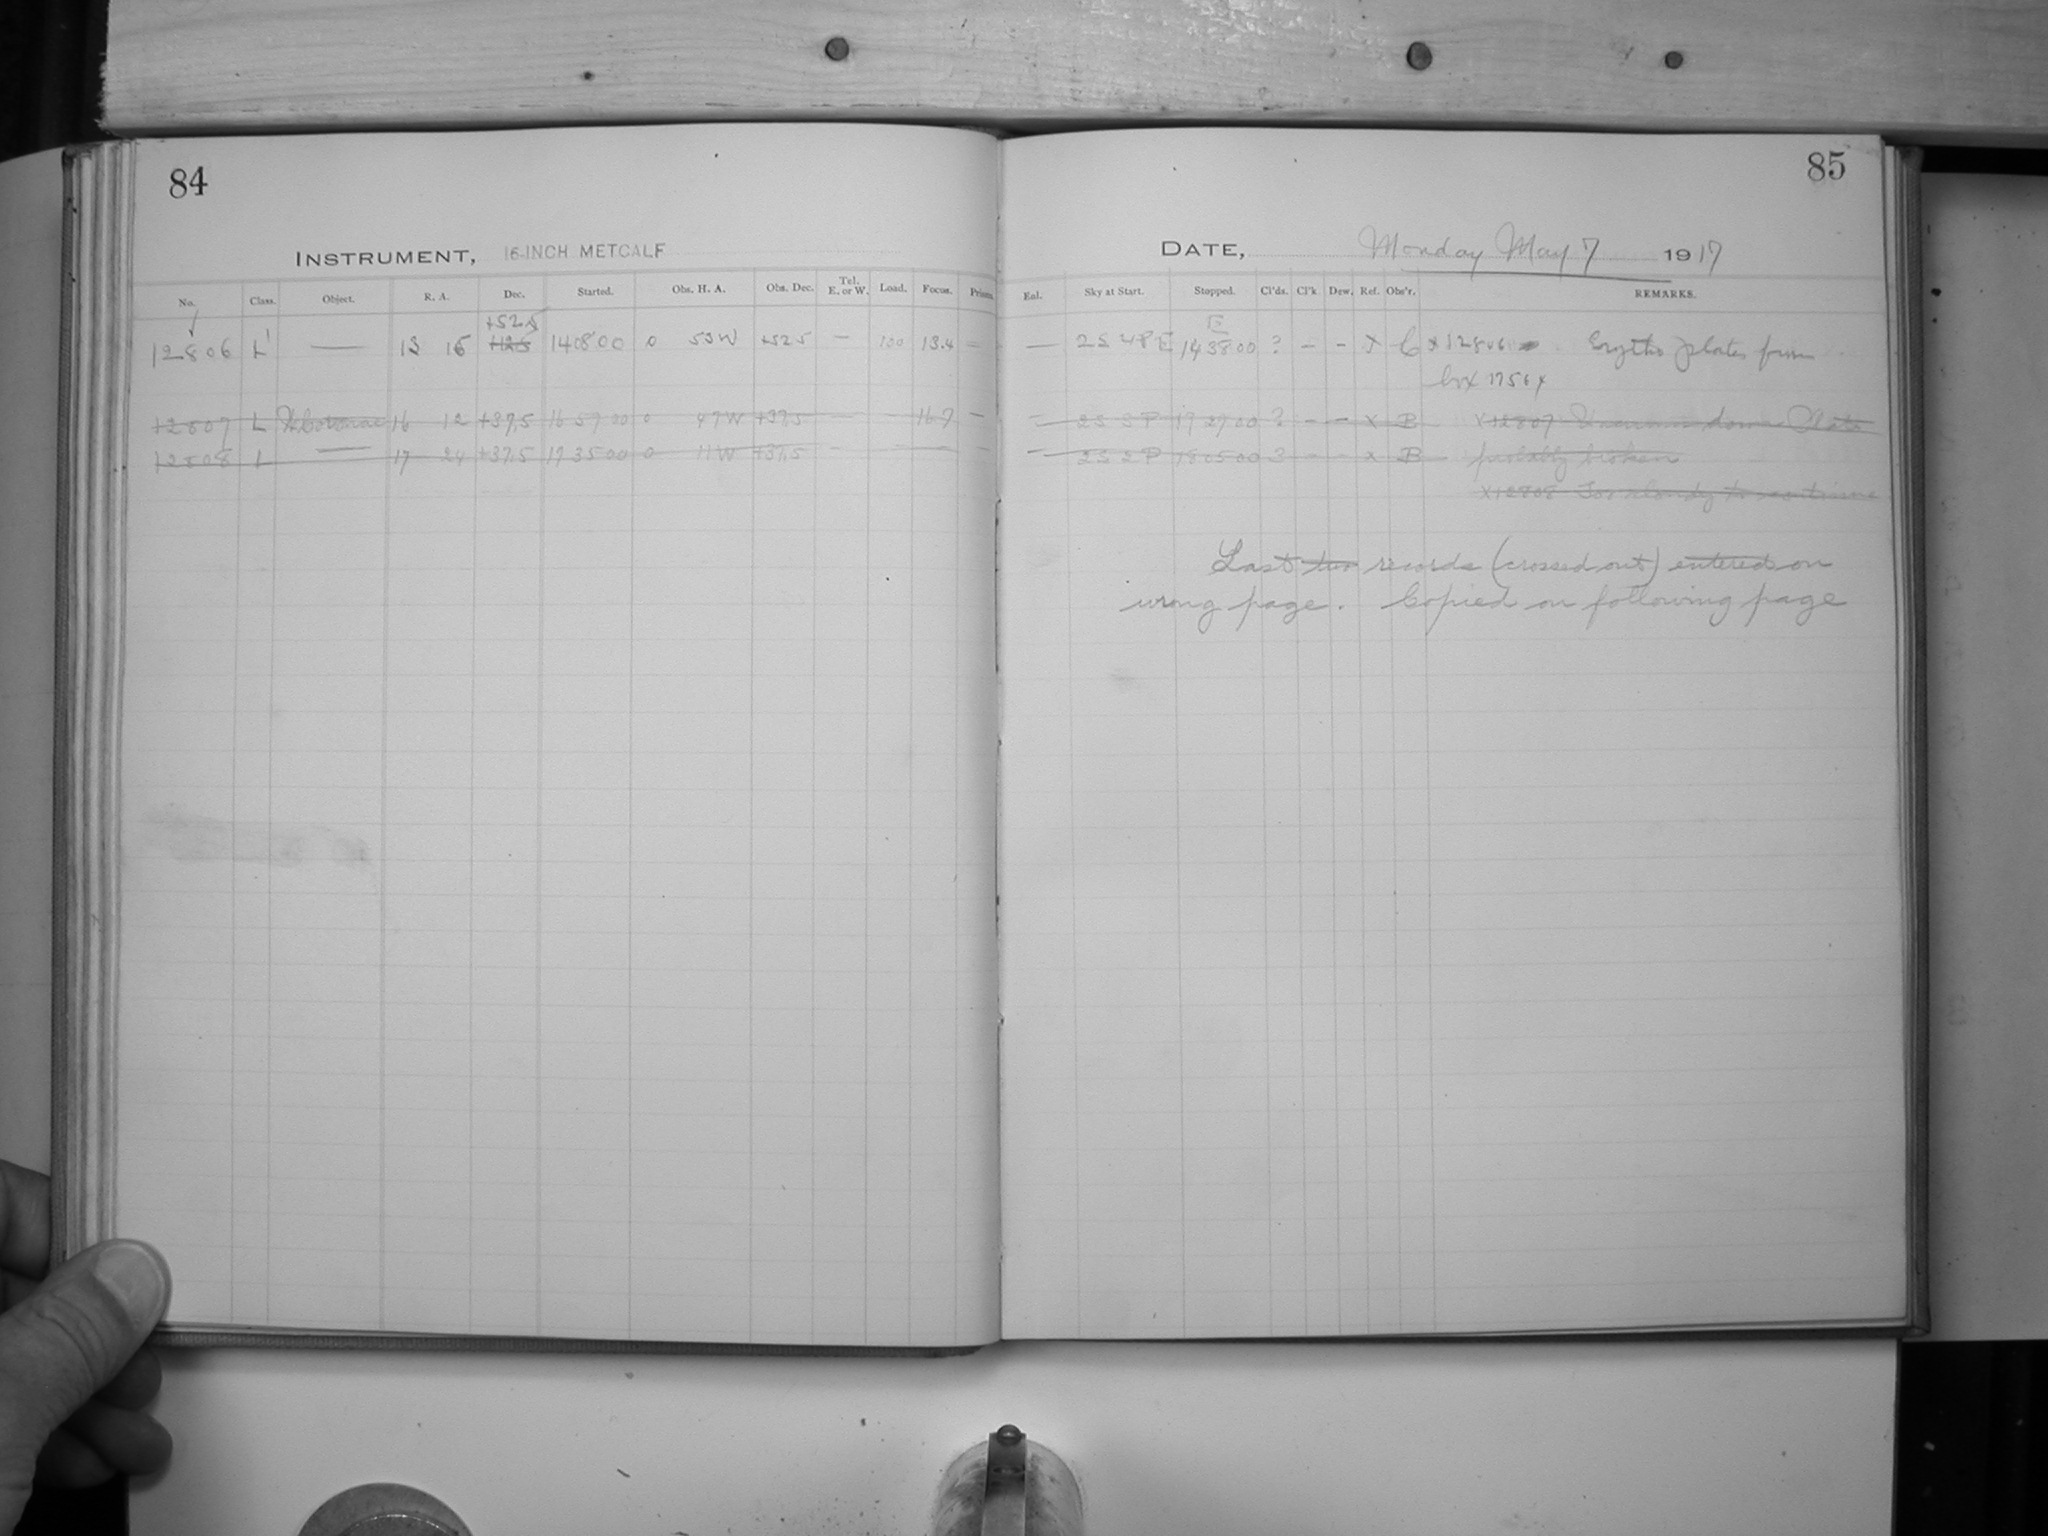 84
85
INSTRUMENT, 16-INCH METCALF
DATE, Monday May 7 1917
No. Class. Object. R. A. Dec. Started. Obs. H. A. Obs. Dec. Tel. E. or W. Load. Focus. Prism. Enl. Sky at Start. Stopped. Cl'ds. Cl'k Dew. Ref. Obs'r. REMARKS.
+52.5 E
12806 L — 13 16 +12.5 14 08 00 0 53 W +52.5 — 100 13.4 — — 2S 4P E 14 38 00 ? – – x C x 12806 Erytho plates from
box 1756 x
12807 L 16 12 +37.5 16 57 00 0 47 W +37.5 — 16.7 — — 2S 3P 17 27 00 ? – – x B x 12807 down Plate
probably broken
12808 L — 17 24 +37.5 17 35 00 0 11 W +37.5 — — 2S 2P 18 05 00 3 – – x B
x 12808 Too cloudy to continue
Last two records (crossed out) entered on
wrong page. Copied on following page